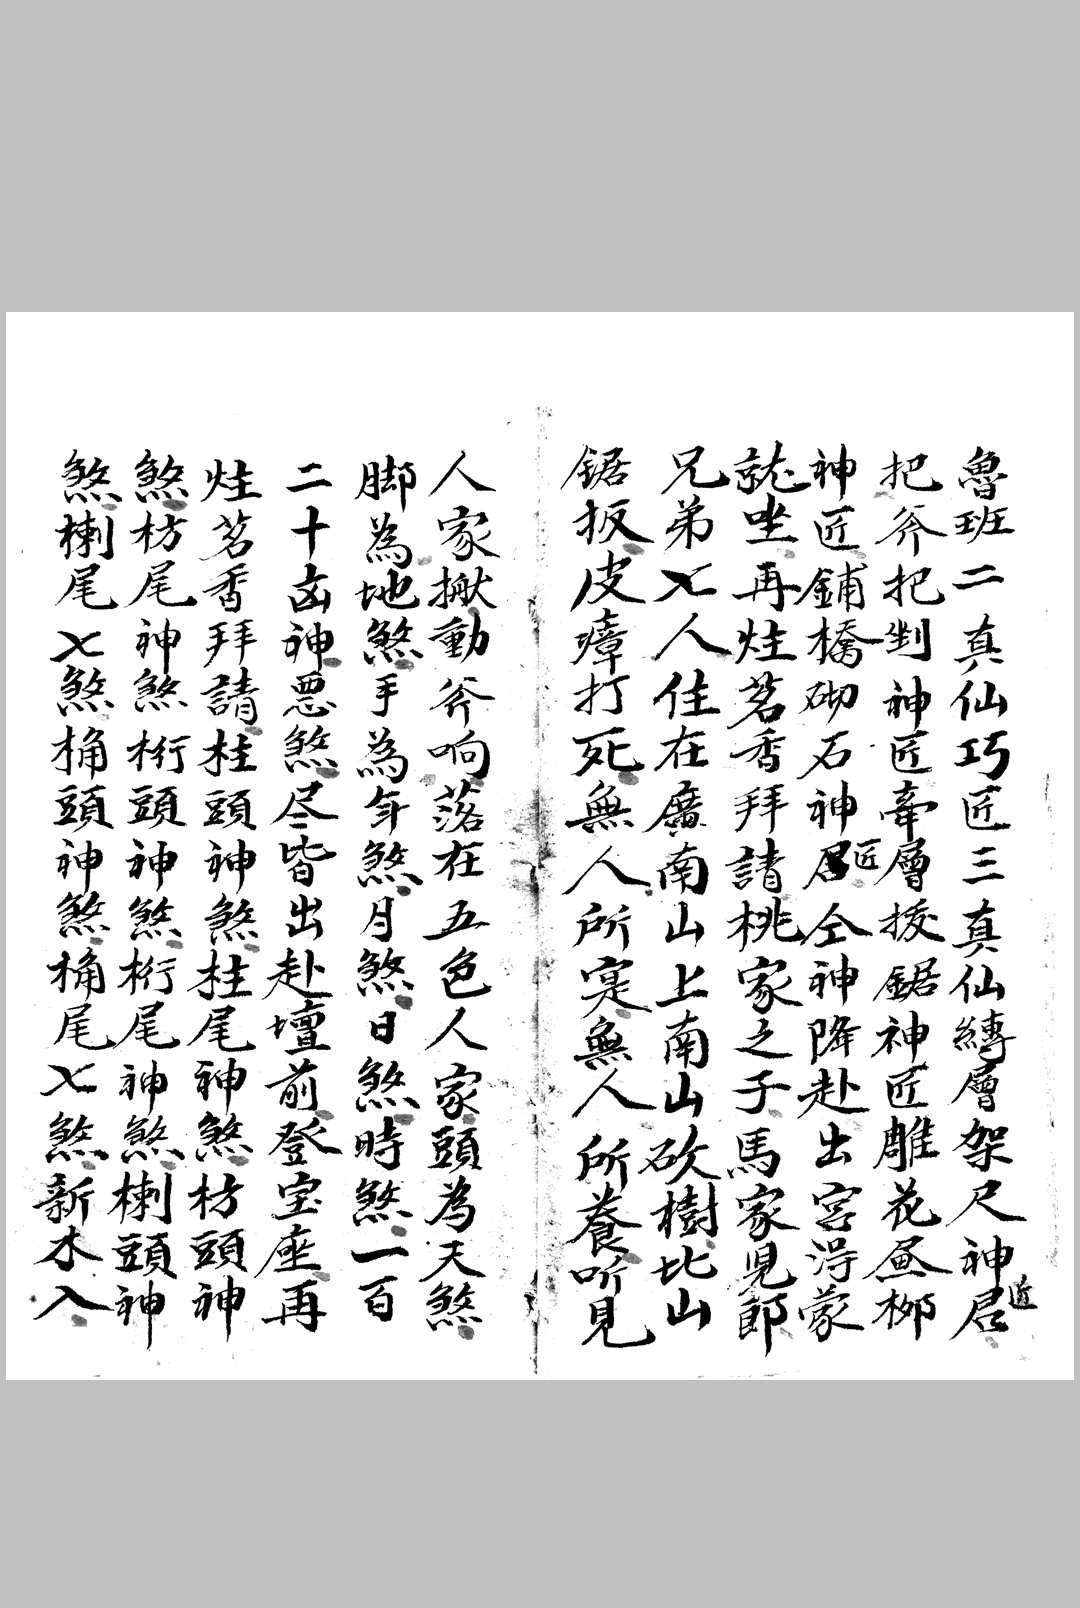 魯班二真仙巧匠三真仙縳層架尺神匠
把斧把剉神匠牽層捘鋸神匠雕花画柳
神匠鋪橋砌石神匠仝神降赴出宫淂蒙
就坐再炷茗香拜請桃家之子馬家見郎
兄弟七人住在廣南山上南山砍樹比山
鋸扳皮瘴打死無人所寔無人所養听見
人家揪動斧响落在五色人家頭為天煞
脚為地煞手為年煞月煞日煞時煞一百
二十凶神惡煞尽皆出赴壇前登宝座再
炷茗香拜請柱頭神煞柱尾神煞枋頭神
煞枋尾神煞桁頭神煞桁尾神煞楋頭神
煞楋尾七煞桷頭神煞桷尾七煞新木入